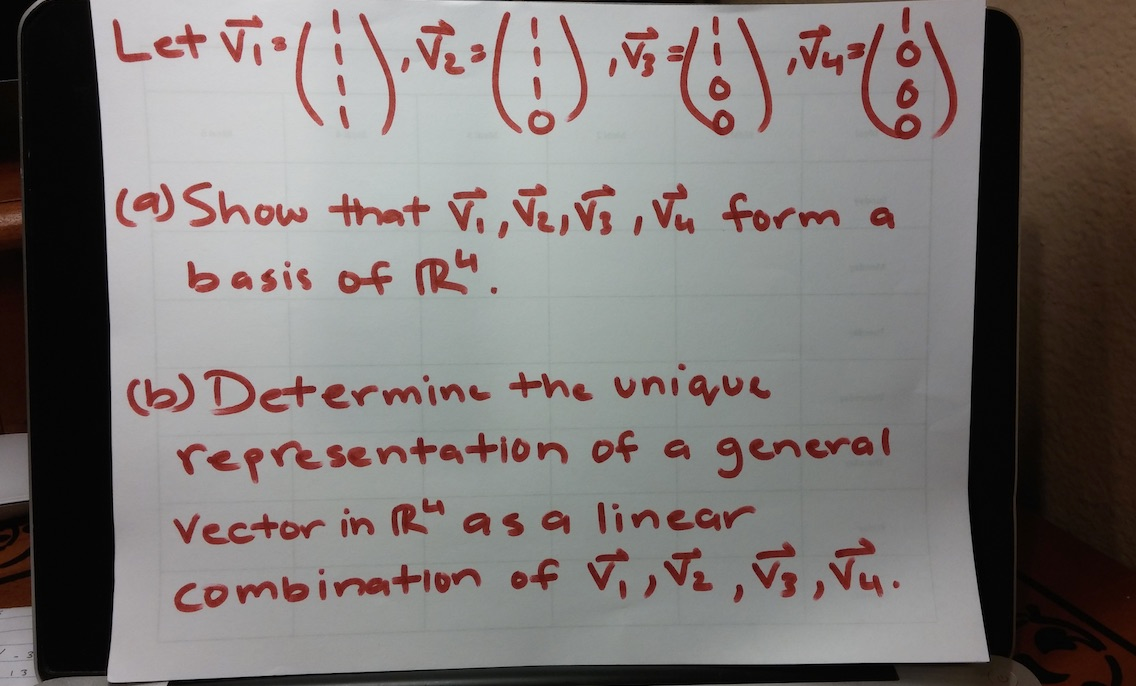 Let v⃗₁ = (1 1 1 1), v⃗₂ = (1 1 1 0), v⃗₃ = (1 1 0 0), v⃗₄ = (1 0 0 0)
(a) Show that v⃗₁, v⃗₂, v⃗₃, v⃗₄ form a
basis of ℝ⁴.
(b) Determine the unique
representation of a general
vector in ℝ⁴ as a linear
combination of v⃗₁, v⃗₂, v⃗₃, v⃗₄.